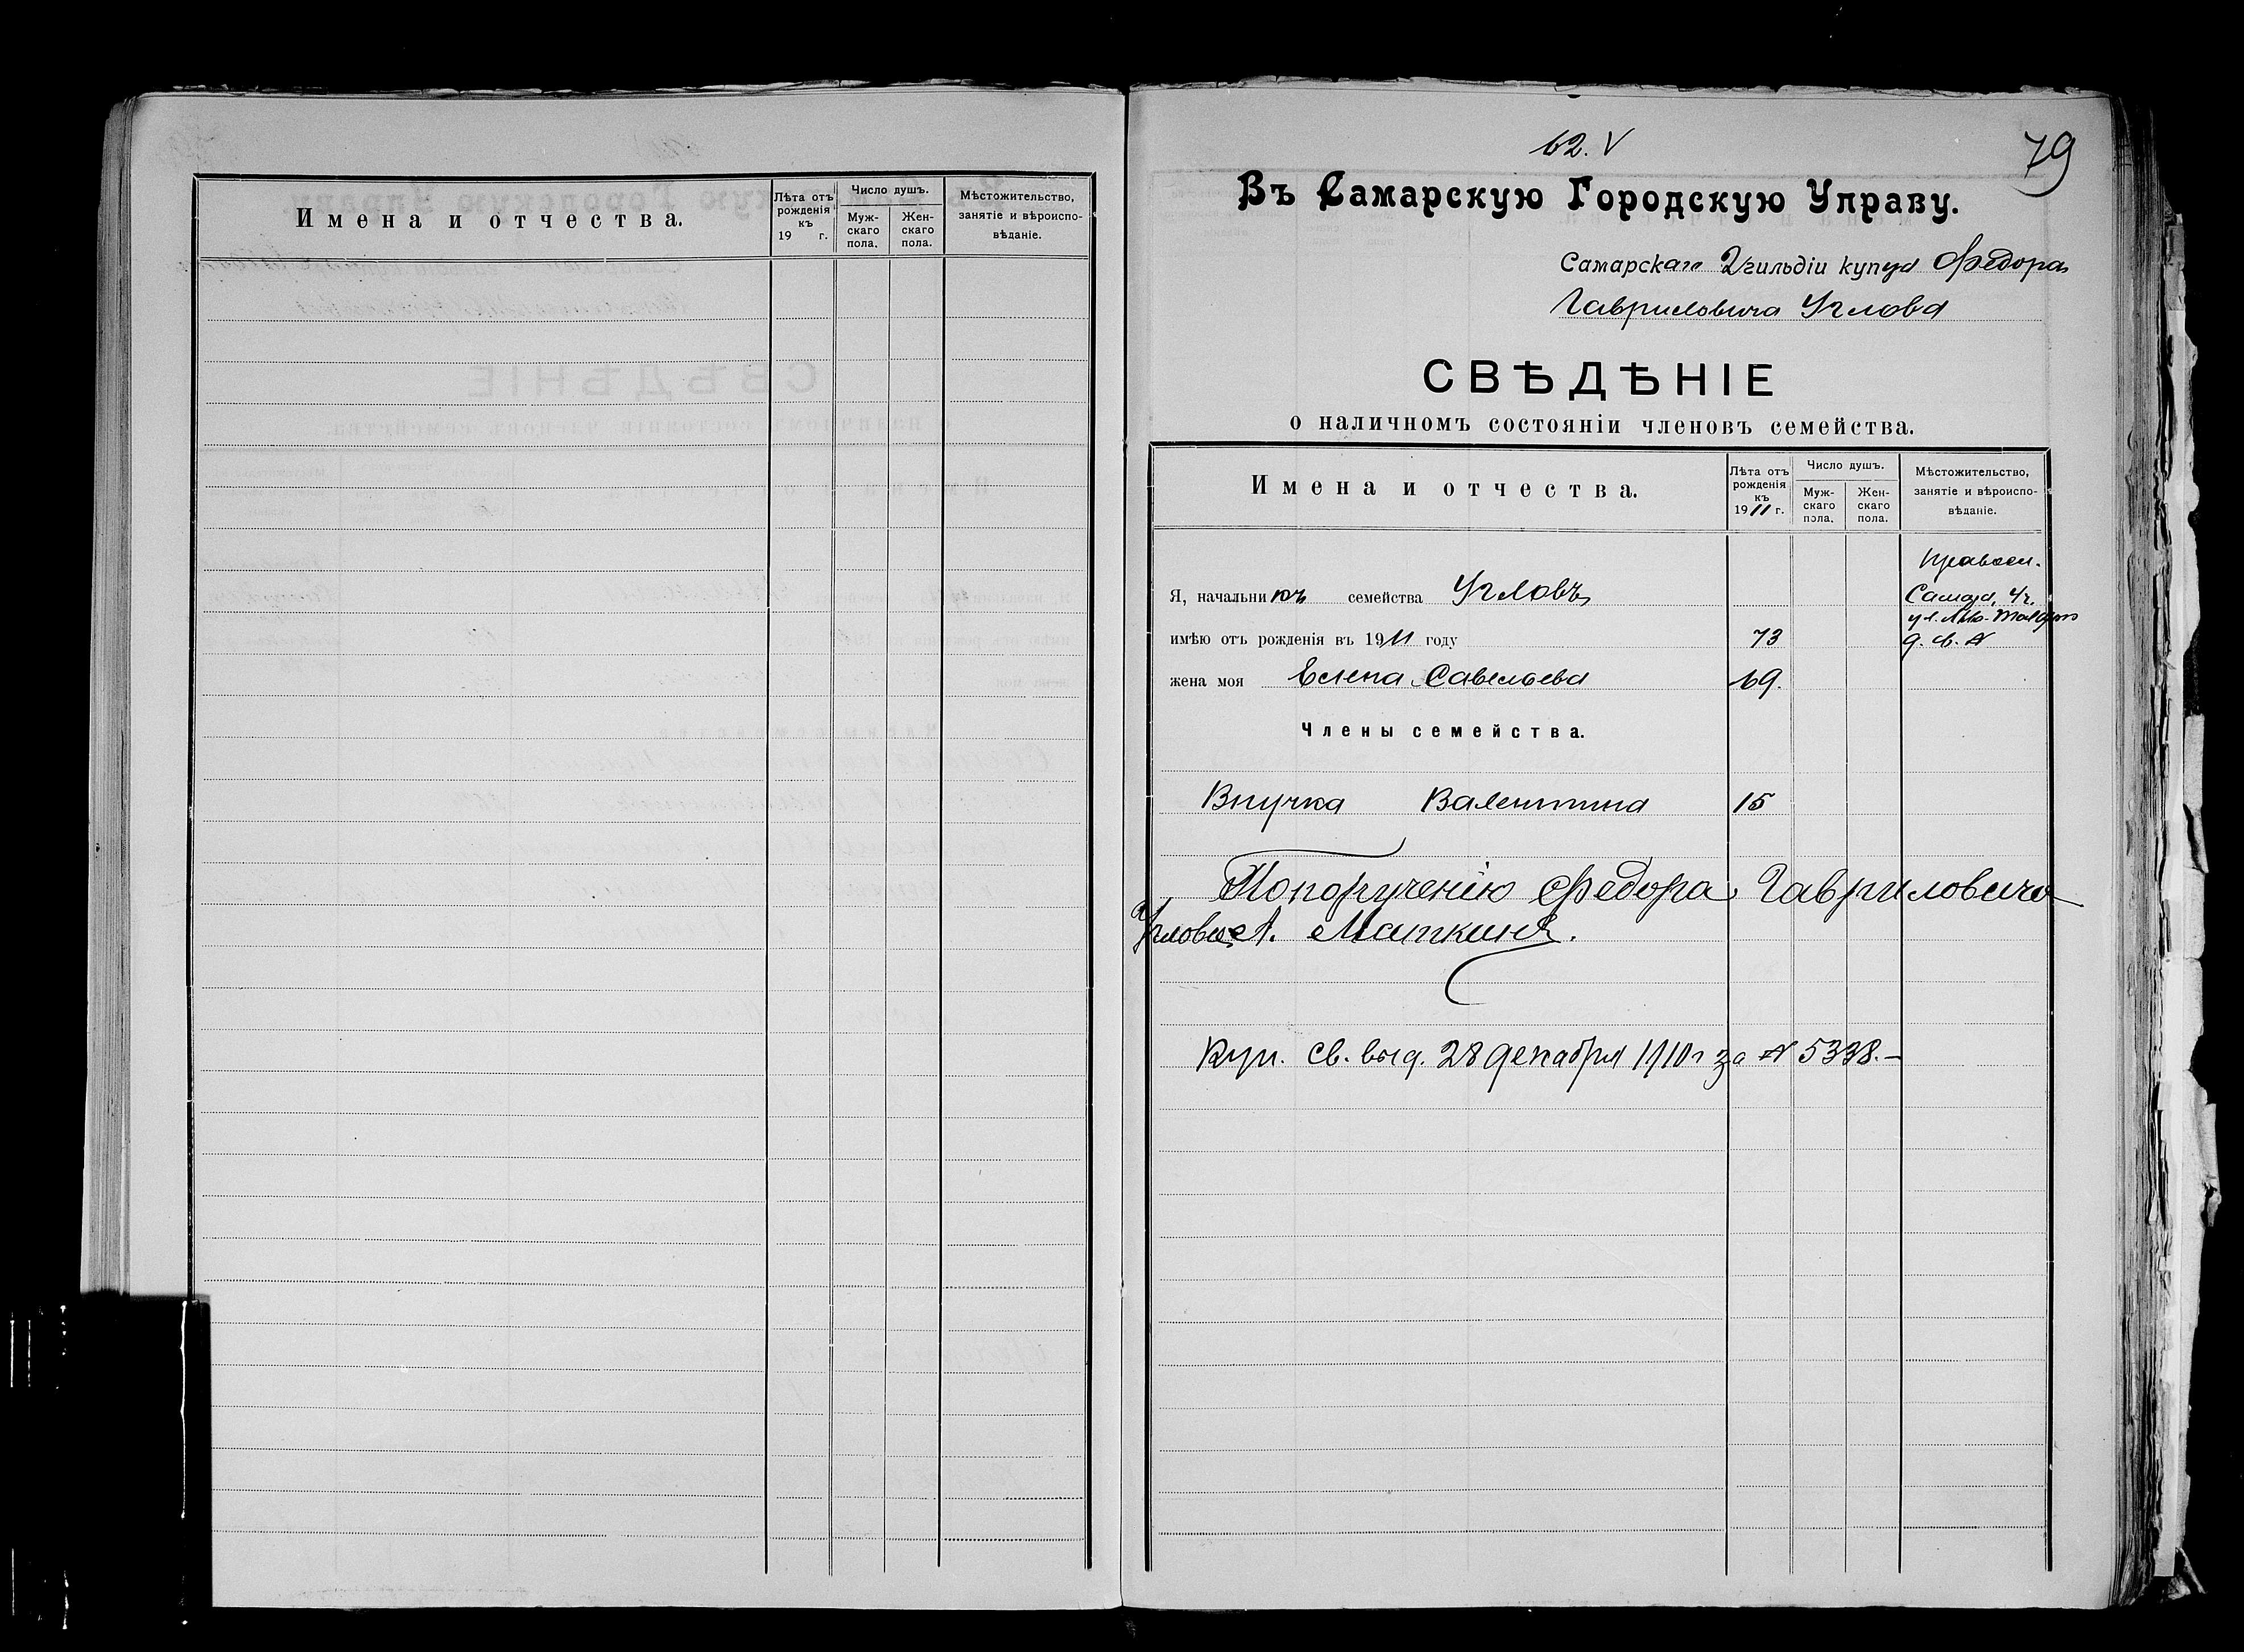 Имена и отчества.
Лѣта отъ рожденія къ 19 г.
Число душъ.
Мужскаго пола.
Женскаго пола.
Мѣстожительство, занятіе и вѣроисповѣданіе.
62. V
79
Въ Самарскую Городскую Управу.
Самарскаго 2 гильдіи купца Федора
Гавриловича Углова
СВѢДѢНІЕ
о наличномъ состояніи членовъ семейства.
Имена и отчества.
Лѣта отъ рожденія къ 1911 г.
Число душъ.
Мужскаго пола.
Женскаго пола.
Мѣстожительство, занятіе и вѣроисповѣданіе.
Правосл.
Я, начальникъ семейства Угловъ
Самара, 4 ч.
имѣю отъ рожденія въ 1911 году 73
ул. Льва Толстого
д. св. №
жена моя Елена Савельева 69.
Члены семейства.
Внучка Валентина 15
По порученію Федора Гавриловича
Углова А. Маткинъ.
Куп. св. выд. 28 декабря 1910 г за № 5338.—